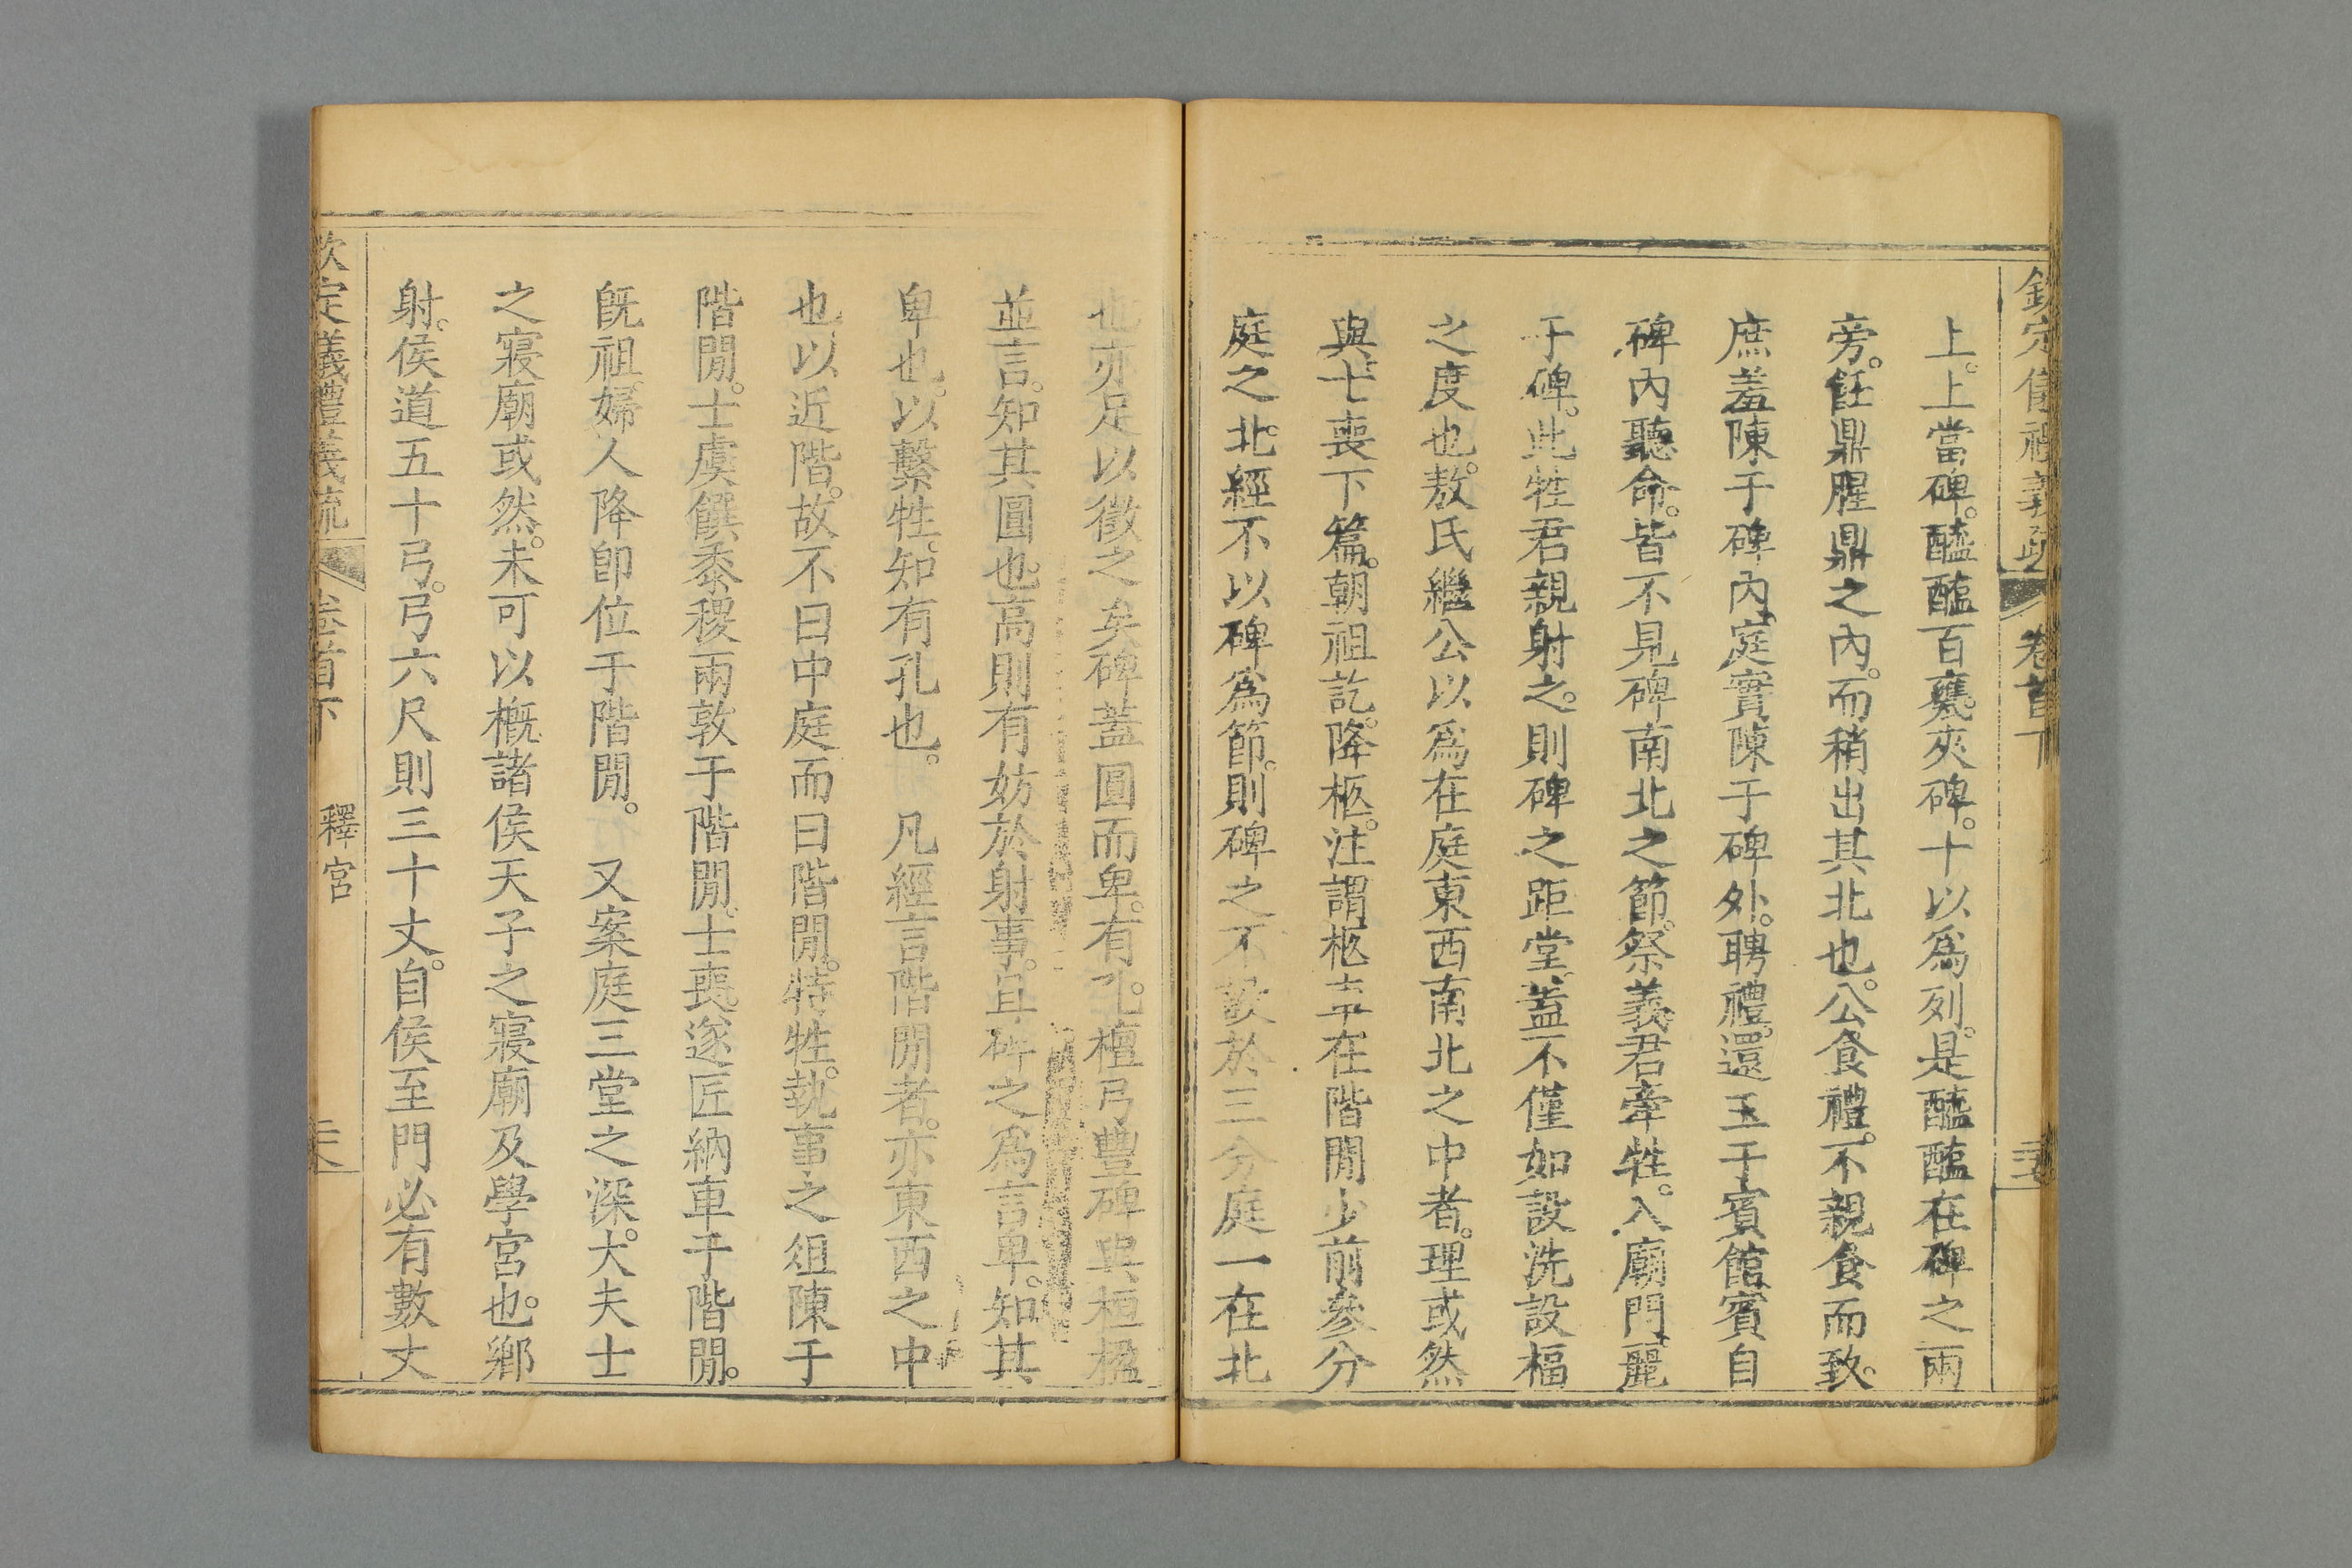 欽定儀禮義疏 卷首下
上。上當碑。醯醢百甕夾碑。十以爲列。是醯醢在碑之兩
旁。飪鼎腥鼎之內。而稍出其北也。公食禮。不親食而致。
庶羞陳于碑內。庭實陳于碑外。聘禮。還玉于賓館。賓自
碑內聽命。皆不見碑南北之節。祭義。君牽牲。入廟門。麗
于碑。此牲君親射之。則碑之距堂。蓋不僅如設洗設楅
之度也。敖氏繼公以爲在庭東西南北之中者。理或然
與。士喪下篇。朝祖訖。降柩。注謂柩車在階閒少前。參分
庭之北。經不以碑爲節。則碑之不設於三分庭一在北
也亦足以徵之矣碑蓋圓而卑。有孔。檀弓豐碑與桓楹
並言。知其圓也。高則有妨於射事。且碑之爲言卑。知其
卑也。以繫牲。知有孔也。 凡經言階閒者。亦東西之中
也。以近階。故不曰中庭而曰階閒。特牲。執事之俎陳于
階閒。士虞饌黍稷兩敦于階閒。士喪遂匠納車于階閒。
旣祖。婦人降卽位于階閒。 又案庭三堂之深。大夫士
之寢廟或然。未可以概諸侯天子之寢廟及學宮也。鄉
射。侯道五十弓。弓六尺則三十丈。自侯至門必有數丈
欽定儀禮義疏 卷首下 釋宮 三六